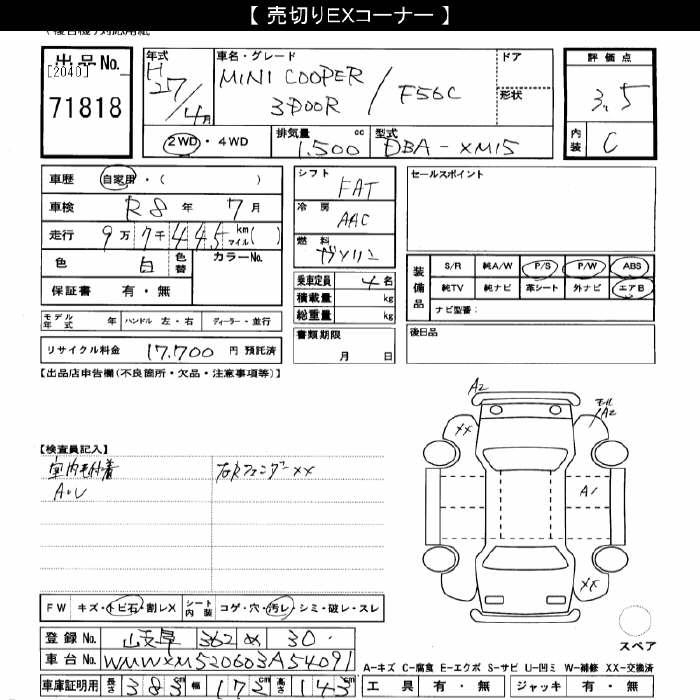 【 売切りEXコーナー 】
出品No.
[2040]
71818
年式
H27/4月
車名・グレード
MINI COOPER
3DOOR / F56C
ドア
形状
評価点
3.5
内装 C
2WD・4WD
排気量 1,500 cc
型式 DBA-XM15
車歴 自家用・( )
車検 R8年 7月
走行 9万7千445 km マイル( )
色 白 色替 カラーNo.
保証書 有・無
シフト FAT
冷房 AAC
燃料 ガソリン
乗車定員 4名
積載量 kg
総重量 kg
書類期限
月 日
セールスポイント
装備品
S/R 純A/W P/S P/W ABS
純TV 純ナビ 革シート 外ナビ エアB
ナビ型番:
後日品
モデル年式 年 ハンドル 左・右 ディーラー・並行
リサイクル料金 17,700 円 預託済
【出品店申告欄(不良箇所・欠品・注意事項等)】
A2
XX
モール A2
A1
XX
スペア
【検査員記入】
室内毛付着
A・U
右Rフェンダー XX
FW キズ・トビ石・割レX シート内装 コゲ・穴・汚レ・シミ・破レ・スレ
登録No. 岐阜 362 め 30
車台No. WMWXM520603A54091
車庫証明用 長さ 383cm 幅 173cm 高さ 143cm
A-キズ C-腐食 E-エクボ S-サビ U-凹ミ W-補修 XX-交換済
工具 有・無 ジャッキ 有・無